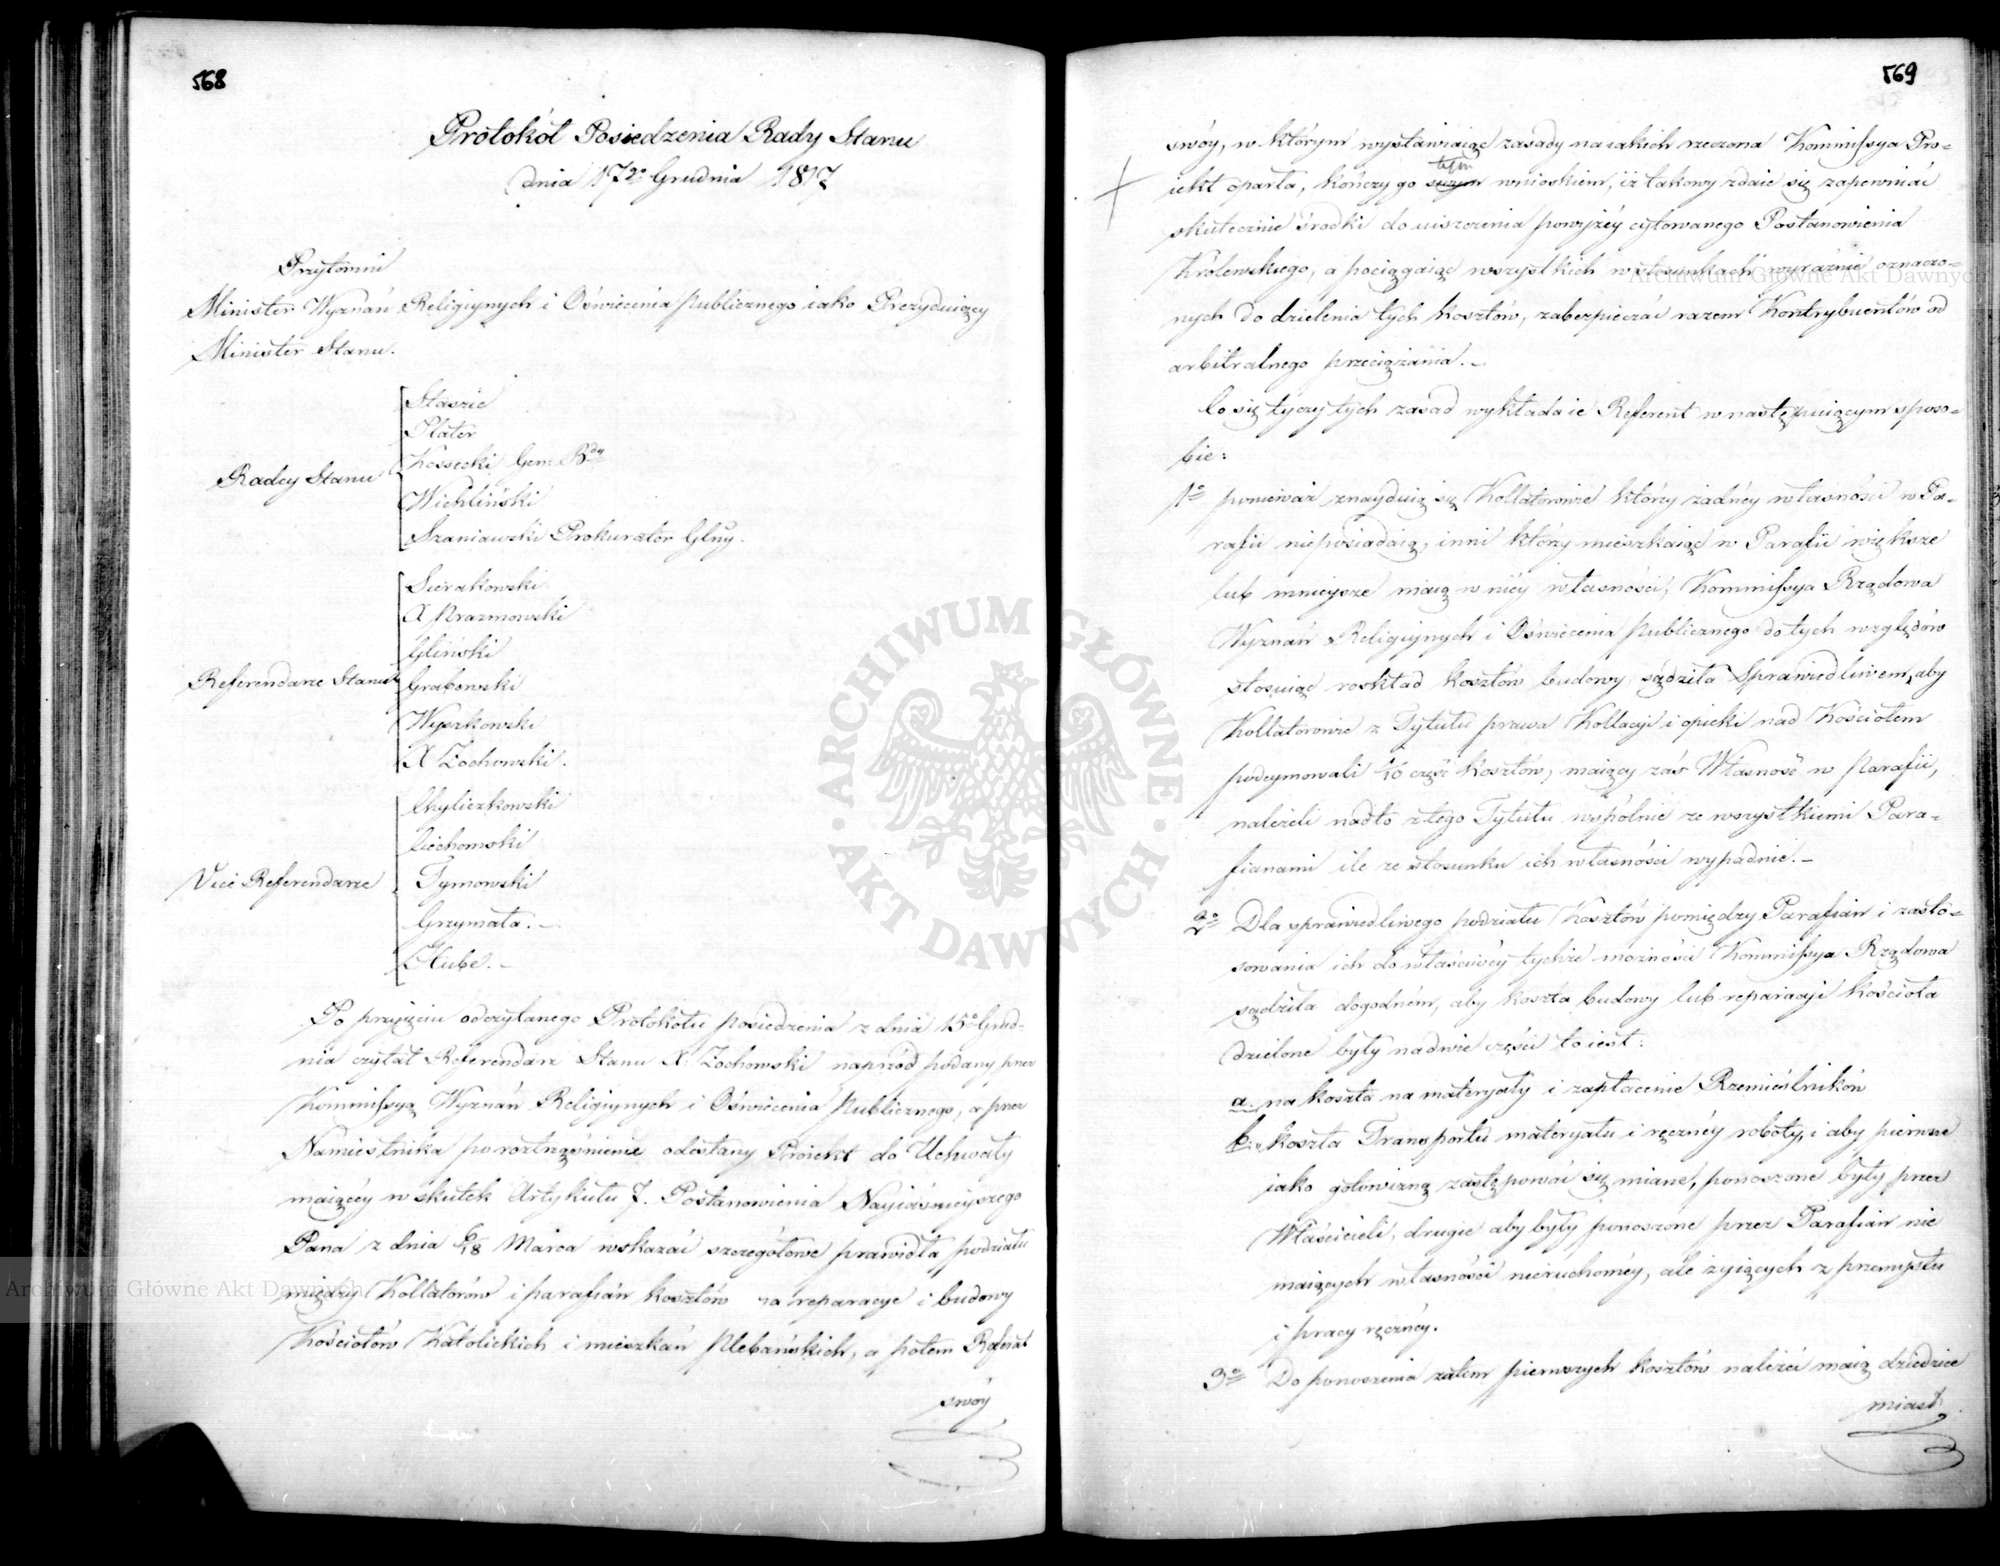 568
Protokół Posiedzenia Rady Stanu
dnia 17go Grudnia 1817
Przytomni
Minister Wyznań Religijnych i Oświecenia Publicznego iako Prezyduiący
Minister Stanu.
Radcy Stanu
Staszic
Plater
Kossecki Gen. Bdy
Wichliński
Szaniawski Prokurator Glny.
Referendarze Stanu
Sierakowski
X Prazmowski
Gliński
Grabowski
Wyszkowski
X Zochowski.
Vice Referendarze
Chyliczkowski
Ciechomski
Tymowski
Grzymała. –
Hube. –
Po przyięciu odczytanego Protokołu posiedzenia z dnia 15o Grud-
nia czytał Referendarz Stanu X. Zochowski naprzód podany przez
Kommissyą Wyznań Religijnych i Oświecenia Publicznego, a przez
Namiestnika po roztrząśnienie odesłany Proiekt do Uchwały
maiącéy w skutek Artykułu 7. Postanowienia Nayiaśnieyszego
Pana z dnia 6/18 Marca wskazać szczegółowe prawidła podziału
między Kollatorów i parafian kosztów na reparacye i budowy
Kościołów Katolickich i mieszkań Plebańskich, a potem Referat
swóy
569
swóy, w którym wystawiaiąc zasady na iakich rzeczona Kommissya Pro-
iekt oparła, kończy go tym wnioskiem, iż takowy zdaie się zapewniać
skutecznie środki do uiszczenia powyżéy cytowanego Postanowienia
Królewskiego, a pociągaiąc wszystkich w stosunkach wyraźnie oznaczo-
nych do dzielenia tych kosztów, zabezpieczać razem Kontrybuentów od
arbitralnego przeciążania. –
Co się tyczy tych zasad wykłada ie Referent w następuiącym sposo-
bie:
1o ponieważ znayduią się Kollatorowie którzy żadnéy własności w Pa-
rafii nieposiadaią, inni którzy mieszkaiąc w Parafii większe
lub mnieysze maią w niéy własności, Kommissya Rządowa
Wyznań Religijnych i Oświecenia Publicznego do tych względów
stosuiąc roskład kosztów budowy sądziła Sprawiedliwem, aby
Kollatorowie z Tytułu prawa Kollacyi i opieki nad Kościołem
podeymowali 1/10 część kosztów, maiący zaś Własność w Parafii,
należeli nadto z tego Tytułu wspólnie ze wszystkiemi Para-
fianami ile ze stosunku ich własności wypadnie. –
2o Dla sprawiedliwego podziału Kosztów pomiędzy Parafian i zasto-
sowania ich do właściwéy tychże możności Kommissya Rządowa
sądziła dogodném, aby koszta budowy lub reparacyi Kościoła
dzielone były na dwie części to iest:
a. na koszta na materyały i zapłacenie Rzemieślników
b. koszta Transportu materyału i ręcznéy roboty, i aby pierwsze
iako gotowizną zastępować się miane, ponoszone były przez
Właścicieli, drugie aby były ponoszone przez Parafian nie
maiących własności nieruchoméy, ale żyiących z przemysłu
i pracy ręcznéy.
3o Do ponoszenia zatem pierwszych kosztów należéć maią dziedzice
miast
Archiwum Główne Akt Dawnych
Archiwum Główne Akt Dawnych
ARCHIWUM GŁÓWNE · AKT DAWNYCH ·